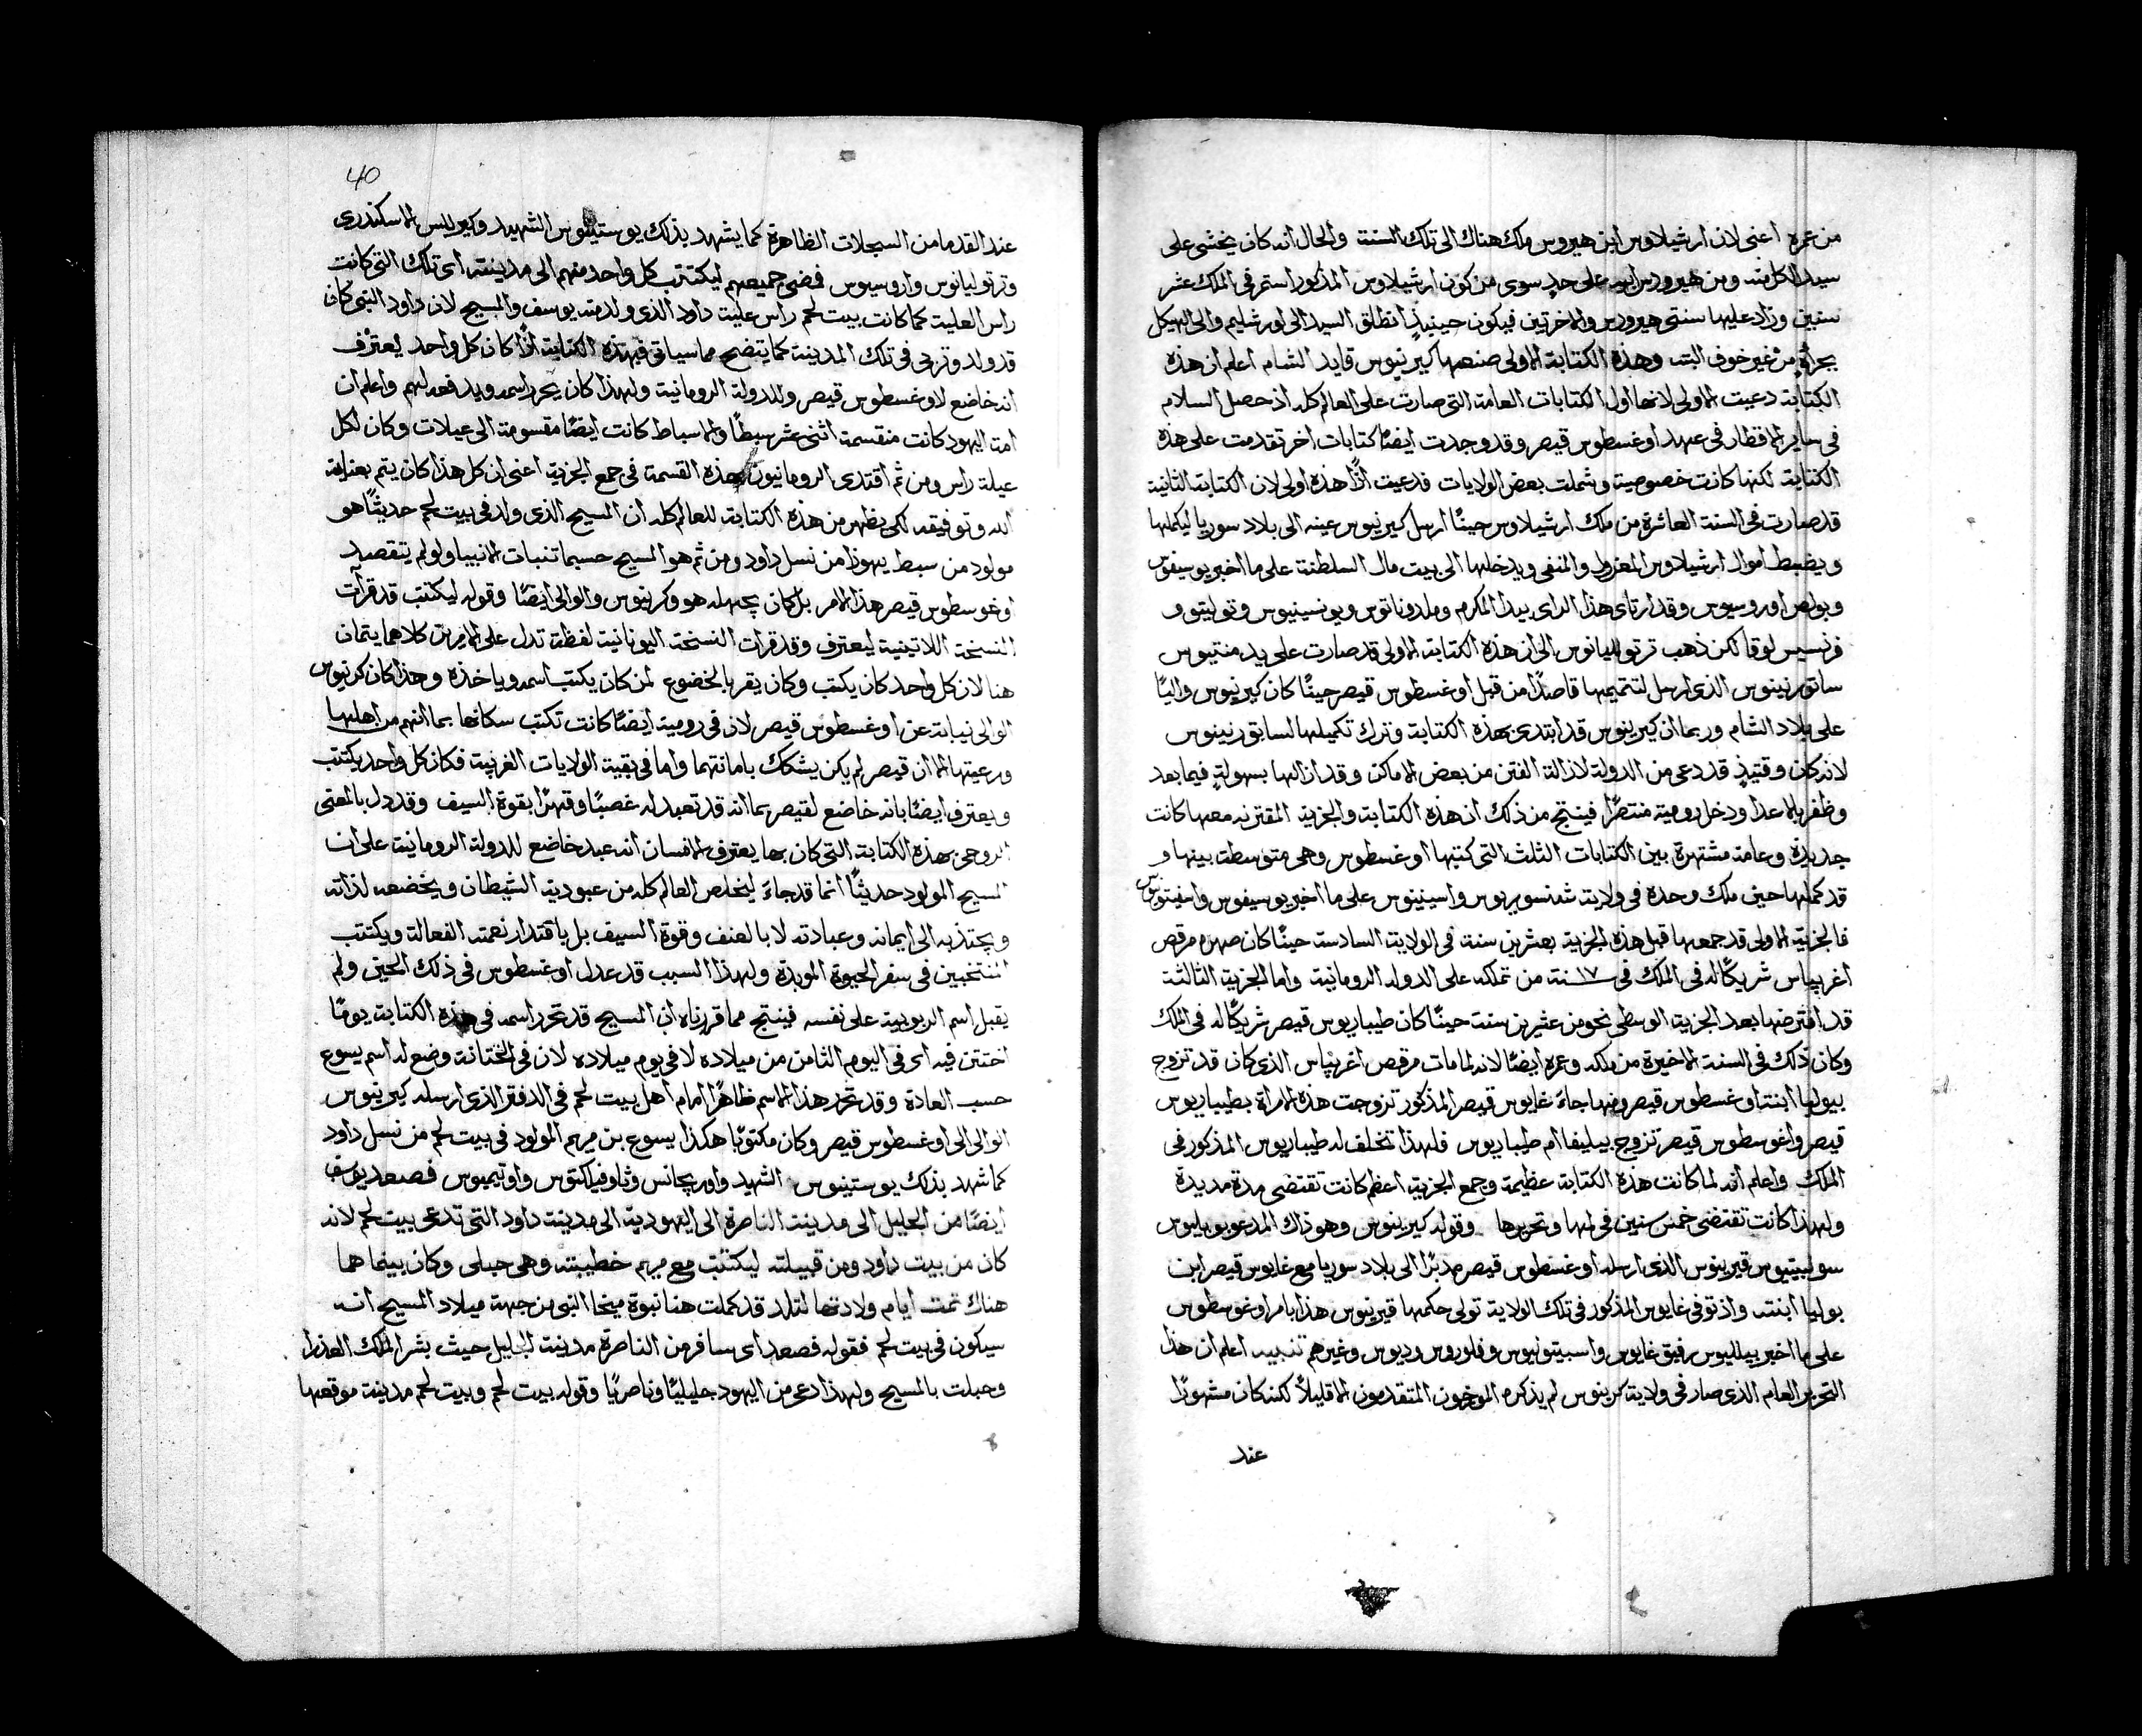 من عمره اعنى لان ارشيلاوس ابن هيرودس ملك هناك الى تلك السنة والحال انه كان يخشى على
سيدنا كل منه ومن هيرودس ابيه على حدٍ سوى من كون ارشيلاوس المذكور استمر فى الملك عشر
سنين وزاد عليها سنتى هيرودس والاخرتين فيكون حينيذٍ انطلق السيد الى اورشليم والى الهيكل
بجراةٍ من غير خوف البته وهذه الكتابة الاولى صنعها كيرينوس قايد الشام اعلم ان هذه
الكتابة دعيت الاولى لانها اول الكتابات العامة التى صارت على العالم كله اذ حصل السلام
فى ساير الاقطار فى عهد اوغسطوس قيصر وقد وجدت ايضًا كتابات اخر تقدمت على هذه
الكتابة لكنها كانت خصوصية وشملت بعض الولايات فدعيت اذًا هذه اولى لان الكتابة الثانية
قد صارت فى السنة العاشرة من ملك ارشيلاوس حينًا ارسل كيرينوس عينه الى بلاد سوريا ليكملها
ويضبط اموال ارشيلاوس المعزول والمنفى ويدخلها الى بيت مال السلطنة على ما اخبر يوسيفوس
وبولص اوروسيوس وقد ارتاى هذا الراى بيدا المكرم وملدوناتوس ويونسينيوس وتوليتوو
فرنسيس لوقا لكن ذهب ترتوليانوس الى ان هذه الكتابة الاولى قد صارت على يد منتيوس
ساتورنينوس الذى ارسل لتتميمها قاصدًا من قبل اوغسطوس قيصر حينًا كان كيرينوس واليًا
على بلاد الشام وربما ان كيرينوس قد ابتدى بهذه الكتابة وترك تكميلها لساتورنينوس
لانه كان وقتيذٍ قد دعى من الدولة لازالة الفتن من بعض الاماكن وقد ازالها بسهولةٍ فيما بعد
وظفر بالاعدا ودخل رومية منتصرًا فينتج من ذلك ان هذه الكتابة والجزية المقترنه معها كانت
جديدة وعامة مشتهرة بين الكتابات الثلث التى كتبها اوغسطوس وهى متوسطة بينها و
قد كملها حين ملك وحده فى ولاية شنسورينوس واسينيوس على ما اخبر يوسيفوس واسيتونيوس
فالجزية الاولى قد جمعها قبل هذه الجزية بعشرين سنة فى الولاية السادسة حينًا كان صهره مرقص
اغريپاس شريكًا له فى الملك فى ١٧ سنة من تملكه على الدوله الرومانية واما الجزية الثالثة
قد افترضها بعد الجزية الوسطى نحو من عشرين سنة حينًا كان طيباريوس قيصر شريكًا له فى الملك
وكان ذلك فى السنة الاخيرة من ملكه وعمره ايضًا لانه لما مات مرقص اغريپاس الذى كان قد تزوج
بيوليا ابنة اوغسطوس قيصر ومنها جاءَ غايوس قيصر المذكور تزوجت هذه الامراة بطيباريوس
قيصر واغوسطوس قيصر تزوج بيليفا ام طيباريوس فلهذا تخلف له طيباريوس المذكور فى
الملك واعلم انه لما كانت هذه الكتابة عظيمة وجمع الجزية اعظم كانت تقتضى مدة مديدة
ولهذا كانت تقتضى خمس سنين فى لمها وتحريرها وقوله كيرينوس وهو ذاك المدعو بوبليوس
سولبيتيوس قيرينوس الذى ارسله اوغسطوس قيصر مدبرًا الى بلاد سوريا مع غايوس قيصر ابن
يوليا ابنته واذ توفى غايوس المذكور فى تلك الولاية تولى حكمها قيرينوس هذا بامر اوغوسطوس
على ما اخبر بيلليوس رفيق غايوس واسبيتونيوس وفلوروس وديوس وغيرهم تنبيه اعلم ان هذا
التحرير العام الذى صار فى ولاية كرينوس لم يذكره المورخون المتقدمون الا قليلاً لكنه كان مشهورًا
عند
40
عند القدما من السجلات الظاهرة كما يشهد بذلك يوستينوس الشهيد وكيرلس الاسكندرى
وترتوليانوس واروسيوس فمضى جميعهم ليكتتب كل واحد منهم الى مدينته اى تلك التى كانت
راس العليت كما كانت بيت لحم راس عليت داود الذى ولد منه يوسف والمسيح لان داود النبى كان
قد ولد وتربى فى تلك المدينة كما يتضح مما سياتى فبهذه الكتابة اذًا كان كل واحد يعترف
انه خاضع لاوغسطوس قيصر وللدولة الرومانية ولهذا كان يحرر اسمه ويدفعه لهم واعلم ان
امة اليهود كانت منقسمة اثنى عشر سبطًا والاسباط كانت ايضًا مقسومة الى عيلات وكان لكل
عيلة راس ومن ثم اقتدى الرومانيون بهذه القسمة فى جمع الجزية اعنى ان كل هذا كان يتم بعناية
الله وتوفيقه لكى يظهر من هذه الكتابة للعالم كله ان المسيح الذى ولد فى بيت لحم حديثًا هو
مولود من سبط يهوذا من نسل داود ومن ثم هو المسيح حسبما تنبات الانبيا ولو لم يتقصد
اوغوسطوس قيصر هذا الامر بل كان يجهله هو وكرينوس والوالى ايضًا وقوله ليكتتب قد قرأت
النسخة اللاتينية ليعترف وقد قرات النسخة اليونانية لفظة تدل على الامرين كلاهما يتمان
هنا لان كل واحد كان يكتب وكان يقر بالخضوع لمن كان يكتب اسمه وياخذه وهذا كان كرنيوس
الوالى نيابة عن اوغسطوس قيصر لان فى رومية ايضًا كانت تكتب سكانها بما انهم من اهلها
ورعيتها الا ان قيصر لم يكن يشكك بامانتهما واما فى بقية الولايات الغريبة فكان كل واحد يكتتب
ويعترف ايضًا بانه خاضع لقيصر بما انه قد تعبد له غصبًا وقهرًا بقوة السيف وقد دل بالمعنى
الروحى بهذه الكتابة التى كان بها يعترف الانسان انه عبد خاضع للدولة الرومانية على ان
المسيح المولود حديثًا انما قد جاءَ ليخلص العالم كله من عبودية الشيطان ويخضعه لذاته
ويجتذبه الى ايمانه وعبادته لا بالعنف وقوة السيف بل باقتدار نعمته الفعالة ويكتتب
المنتخبين فى سفر الحيوة الموبدة ولهذا السبب قد عدل اوغسطوس فى ذلك الحين ولم
يقبل اسم الربوبية على نفسه فينتج مما قررناه ان المسيح قد تحرر اسمه فى هذه الكتابة يومًا
اختتن فيه اى فى اليوم الثامن من ميلاده لا فى يوم ميلاده لان فى الختانة وضع له اسم يسوع
حسب العادة وقد تحرر هذا الاسم ظاهرًا امام اهل بيت لحم فى الدفتر الذى ارسله كيرينوس
الوالى الى اوغسطوس قيصر وكان مكتوبًا هكذا يسوع بن مريم المولود فى بيت لحم من نسل داود
كما شهد بذلك يوستينوس الشهيد واوريجانس وثاوفيلكتوس واوتيميوس فصعد يوسف
ايضًا من الجليل الى مدينة الناصرة الى اليهودية الى مدينة داود التى تدعى بيت لحم لانه
كان من بيت داود ومن قبيلته ليكتتب مع مريم خطيبته وهى حبلى وكان بينما هما
هناك تمت ايام ولادتها لتلد قد كملت هنا نبوة ميخا النبى من جهة ميلاد المسيح انه
سيكون فى بيت لحم فقوله فصعد اى سافر من الناصرة مدينة الجليل حيث بشر الملك العذرا
وحبلت بالمسيح ولهذا دعى من اليهود جليليًا وناصريًا وقوله بيت لحم وبيت لحم مدينة موقعها